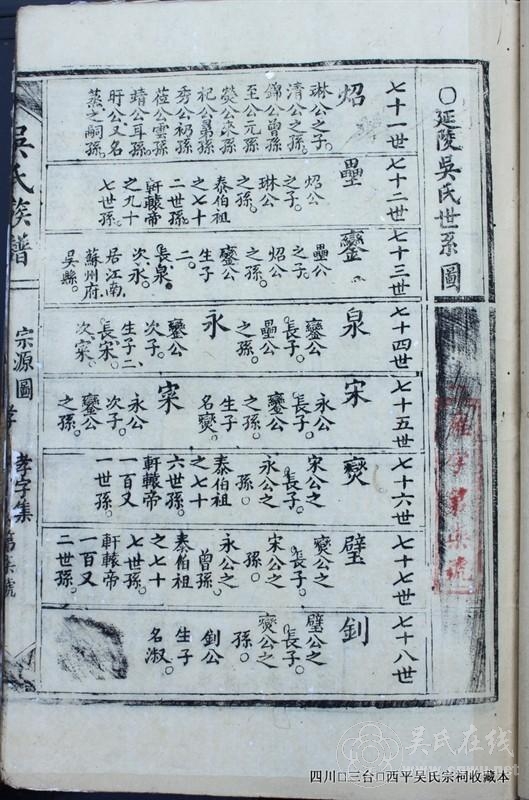 ○延陵吳氏世系圖
七十一世
炤
琳公之子。
清公之孫。
錦公曾孫
至公元孫
燮公來孫
祀公晜孫
秀公礽孫
莅公雲孫
靖公耳孫
盱公又名
蒸之嗣孫。
七十二世
壘
炤公
之子。
琳公
之孫。
泰伯祖
之七十
二世孫
軒轅帝
之九十
七世孫。
七十三世
鑾
壘公
之子。
炤公
之孫。
鑾公
生子
二。
長泉。
次永。
居江南
蘇州府
吳縣。
七十四世
泉
鑾公
長子。
壘公
之孫。
永
鑾公
次子。
生子二、
長宋。
次寀。
七十五世
宋
永公
長子。
鑾公
之孫。
生子
名燮。
寀
永公
次子。
鑾公
之孫。
七十六世
燮
宋公之
長子。
永公之
孫。
泰伯祖
之七十
六世孫。
軒轅帝
一百又
一世孫。
七十七世
璧
燮公之
長子。
宋公之
孫。
永公之
曾孫。
泰伯祖
之七十
七世孫。
軒轅帝
一百又
二世孫。
七十八世
釗
璧公之
長子。
燮公之
孫。
釗公
生子
名淑。
吳氏族譜
宗源圖
孝字集
吴氏在线
www.cnwu.net
四川□三台□西平吴氏宗祠收藏本